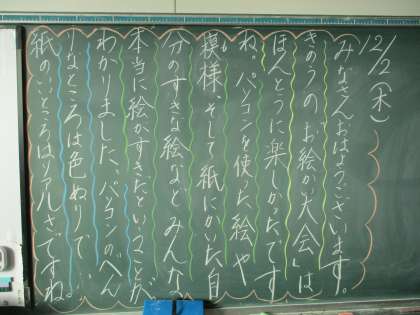 12/2(木)
みなさんおはようございます。
きのうの「お絵かき大会」は
ほんとうに楽しかったです
ね。パソコンを使った絵や
模様、そして紙にかいた自
分のすきな絵など みんなの
本当に絵がすきだということが
わかりました。パソコンのべん
りなところは色ぬりで
紙のいいところはリアルさですね。